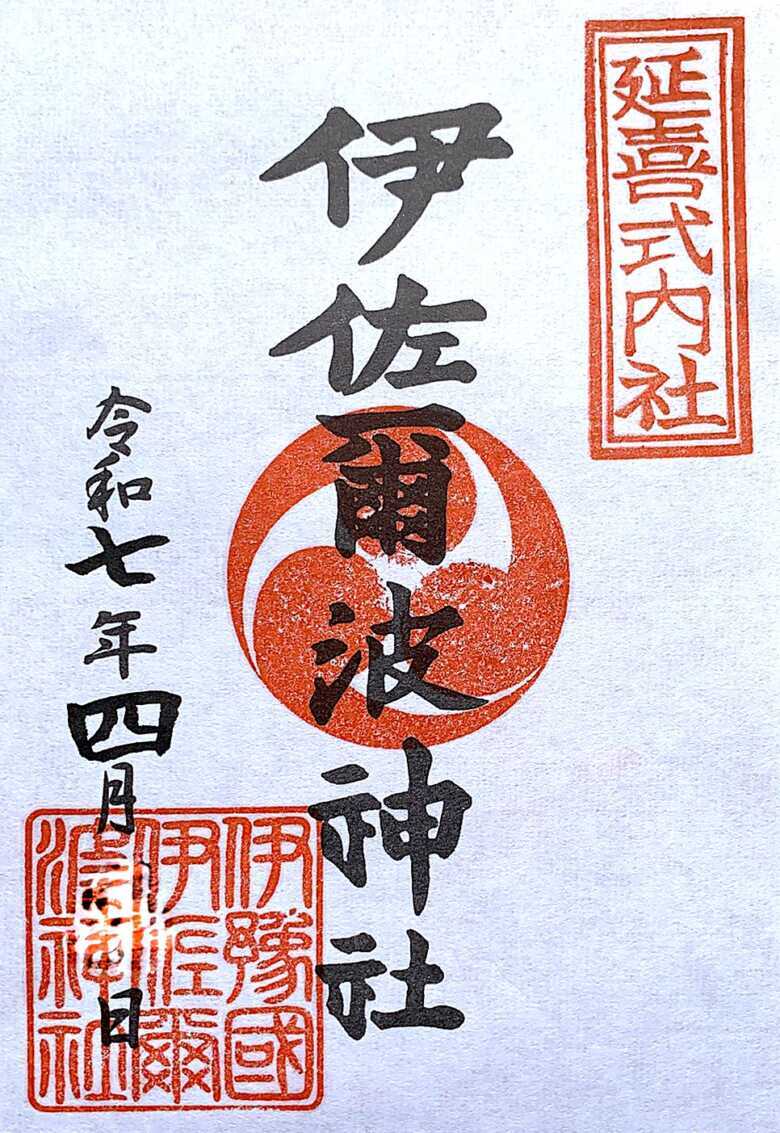 延喜式内社
伊佐爾波神社
令和七年四月 日
伊豫國
伊佐爾
波神社